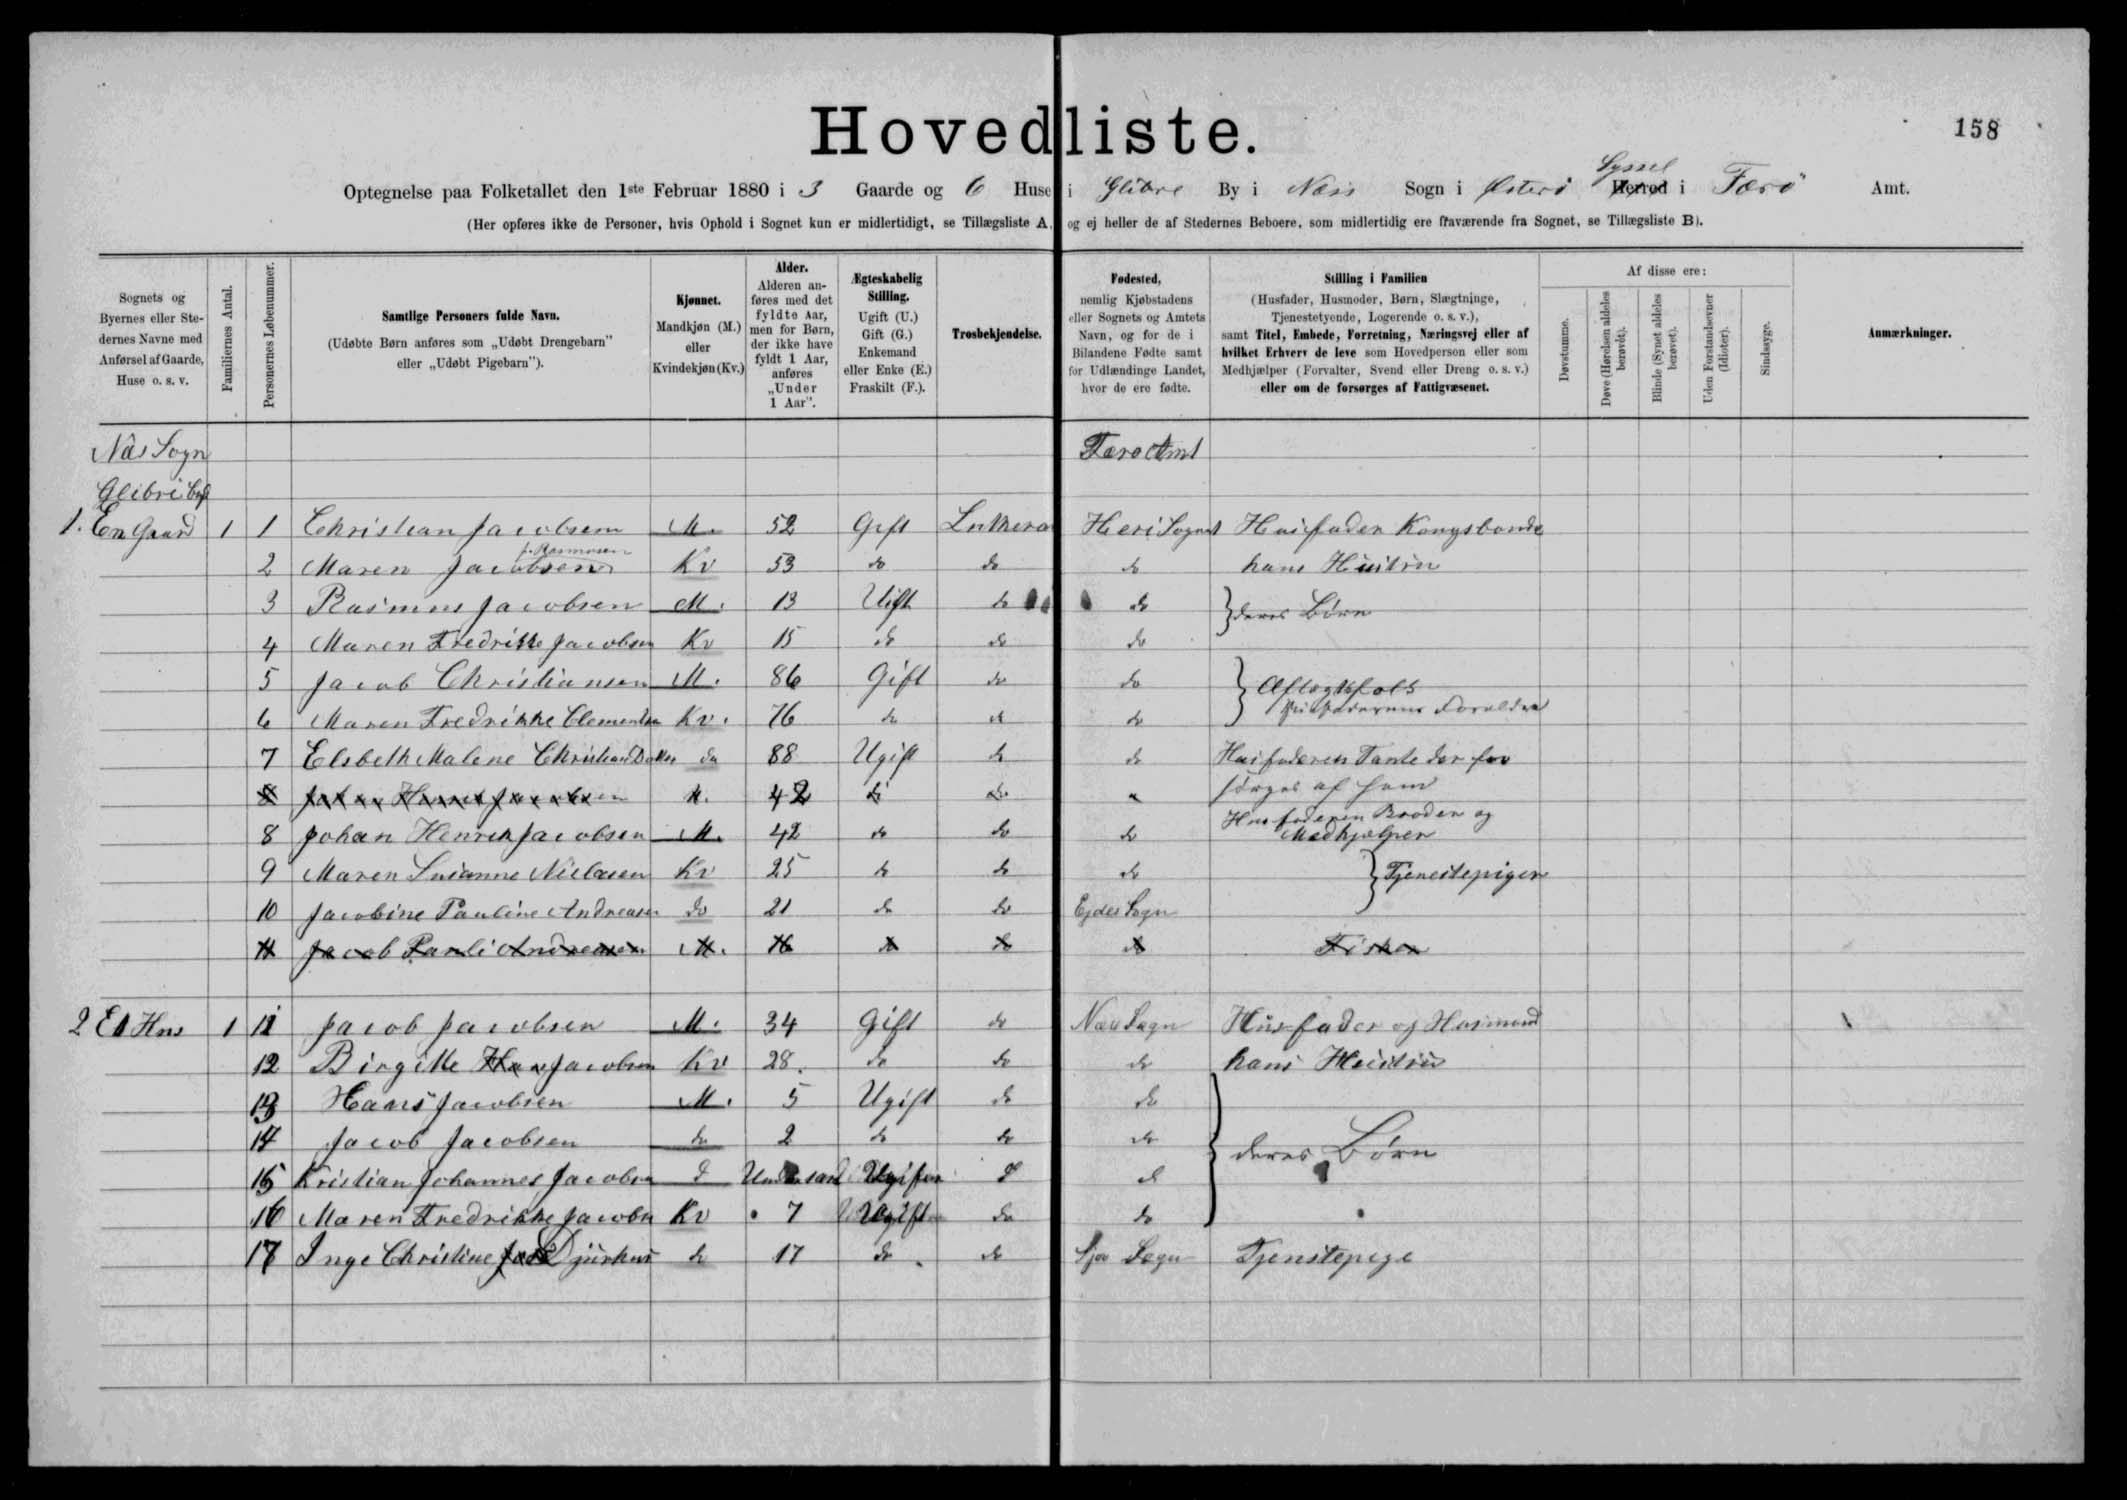 158
Hovedliste.
Optegnelse paa Folketallet den 1ste Februar 1880 i 3 Gaarde og 6 Huse i Glibre By i Næs Sogn i Østerø Syssel Herred i Færø Amt.
(Her opføres ikke de Personer, hvis Ophold i Sognet kun er midlertidigt, se Tillægsliste A, og ej heller de af Stedernes Beboere, som midlertidig ere fraværende fra Sognet, se Tillægsliste B).
Sognets og Byernes eller Stedernes Navne med Anførsel af Gaarde, Huse o. s. v.
Familiernes Antal.
Personernes Løbenummer.
Samtlige Personers fulde Navn.
(Udøbte Børn anføres som „Udøbt Drengebarn" eller „Udøbt Pigebarn").
Kjønnet.
Mandkjøn (M.) eller Kvindekjøn (Kv.)
Alder.
Alderen anføres med det fyldte Aar, men for Børn, der ikke have fyldt 1 Aar, anføres „Under 1 Aar".
Ægteskabelig Stilling.
Ugift (U.) Gift (G.) Enkemand eller Enke (E.) Fraskilt (F.).
Trosbekjendelse.
Fødested,
nemlig Kjøbstadens eller Sognets og Amtets Navn, og for de i Bilandene Fødte samt for Udlændinge Landet, hvor de ere fødte.
Stilling i Familien
(Husfader, Husmoder, Børn, Slægtninge, Tjenestetyende, Logerende o. s. v.),
samt Titel, Embede, Forretning, Næringsvej eller af hvilket Erhverv de leve som Hovedperson eller som Medhjælper (Forvalter, Svend eller Dreng o. s. v.) eller om de forsørges af Fattigvæsenet.
Af disse ere:
Døvstumme.
Døve (Hørelsen aldeles berøvet).
Blinde (Synet aldeles berøvet).
Uden Forstandsevner (Idioter).
Sindssyge.
Anmærkninger.
Næs Sogn Færø Amt
Glibri By
1. En Gaard 1 1 Christian Jacobsen M. 52 Gift Luthera Heri Sognet Husfader Kongsbonde
f. Rasmusen
2 Maren Jacobsen Kv 53 do do do hans Hustru
3 Rasmus Jacobsen M. 13 Ugift do do deres Børn
4 Maren Fredrikke Jacobsen Kv 15 do do do
5 Jacob Christiansen M. 86 Gift do do Aftægtsfolk
6 Maren Fredrikke Clementsen Kv. 76 do do do Husfaderens Forældre
7 Elsbeth Malene Christiansdatter do 88 Ugift do do Husfaderens Tante der for
8 Johan Henrik Jacobsen M. 42 do do sørges af ham
8 Johan Henrik Jacobsen M. 42 do do do Husfaderen Broder og Medhjælper
9 Maren Susanne Nielasen Kv 25 do do do Tjenestepiger
10 Jacobine Pauline Andreasen do 21 do do Ejdes Sogn
11 Jacob Pauli Andreasen M. 16 do do do Fisker
2 Et Hus 1 11 Jacob Jacobsen M. 34 Gift do Næs Sogn Husfader og Husmand
12 Birgitte Jacobsen Kv 28. do do do hans Hustru
13 Hans Jacobsen M. 5 Ugift do do
14 Jacob Jacobsen do 2 do do do deres Børn
15 Kristian Johannes Jacobsen d Ugift d d
16 Maren Fredrikke Jacobsn Kv 7 Ugift do do
17 Inge Christine Djurhus do 17 do do Sogn Tjenstepige